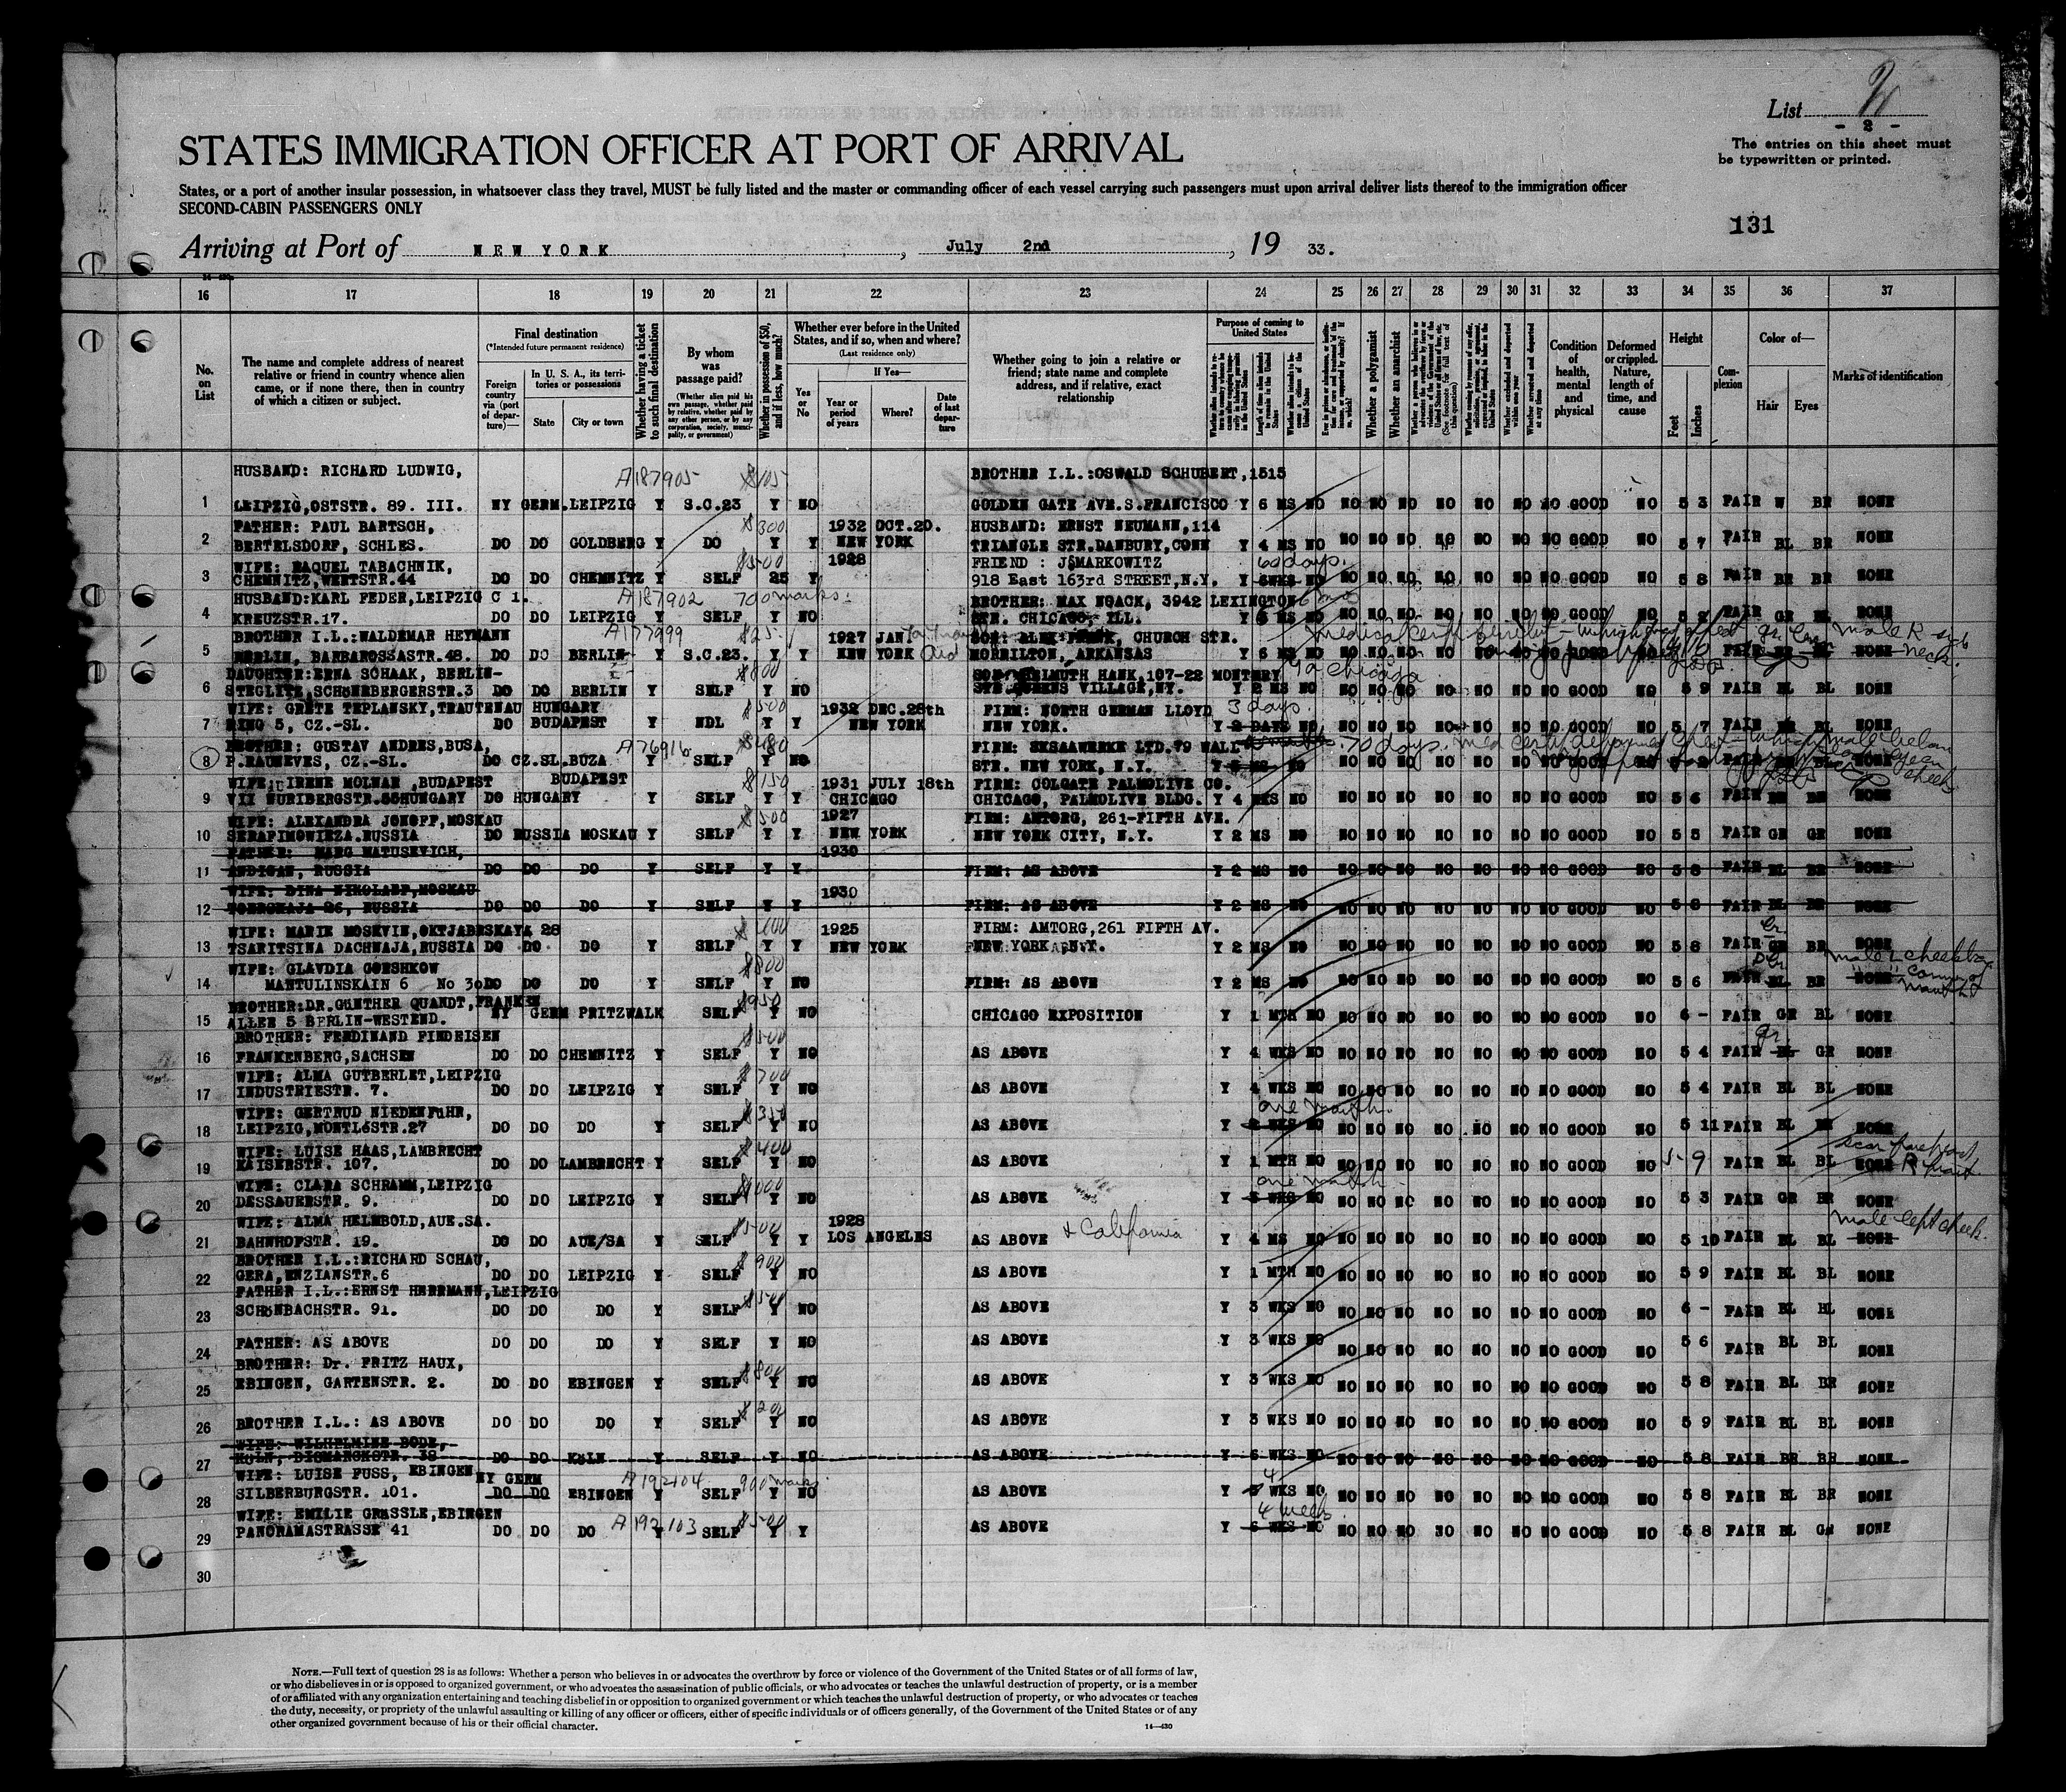 List 2
- 2 -
The entries on this sheet must
be typewritten or printed.
STATES IMMIGRATION OFFICER AT PORT OF ARRIVAL
States, or a port of another insular possession, in whatsoever class they travel, MUST be fully listed and the master or commanding officer of each vessel carrying such passengers must upon arrival deliver lists thereof to the immigration officer
SECOND-CABIN PASSENGERS ONLY
131
Arriving at Port of NEW YORK, July 2nd, 19 33.
16 17 18 19 20 21 22 23 24 25 26 27 28 29 30 31 32 33 34 35 36 37
No. on List
The name and complete address of nearest
relative or friend in country whence alien
came, or if none there, then in country
of which a citizen or subject.
Final destination
(*Intended future permanent residence)
Foreign country via (port of departure)—
In U. S. A., its territories or possessions
State
City or town
Whether having a ticket to such final destination
By whom was passage paid?
(Whether alien paid his own passage, whether paid by relative, whether paid by any other person, or by any corporation, society, municipality, or government)
Whether in possession of $50, and if less, how much?
Whether ever before in the United
States, and if so, when and where?
(Last residence only)
Yes or No
If Yes—
Year or period of years
Where?
Date of last departure
Whether going to join a relative or
friend; state name and complete
address, and if relative, exact
relationship
Purpose of coming to United States
Whether a polygamist
Whether an anarchist
Condition of health, mental and physical
Deformed or crippled. Nature, length of time, and cause
Height
Feet
Inches
Complexion
Color of—
Hair
Eyes
Marks of identification
HUSBAND: RICHARD LUDWIG, A187905 $105 BROTHER I.L.:OSWALD SCHUBERT,1515
1 LEIPZIG,OSTSTR. 89. III. NY GERM.LEIPZIG Y S.C.23 Y NO GOLDEN GATE AVE.S.FRANCISCO Y 6 MS NO NO NO NO NO NO NO NO GOOD NO 5 3 FAIR W BR NONE
FATHER: PAUL BARTSCH, $300 1932 OCT.20. HUSBAND: ERNST NEUMANN,114
2 BERTELSDORF, SCHLES. DO DO GOLDBERG Y DO Y Y NEW YORK TRIANGLE STR.DANBURY,CONN Y 4 MS NO NO NO NO NO NO NO NO GOOD NO 5 7 FAIR BL BR NONE
WIFE: RAQUEL TABACHNIK, $500 1928 FRIEND : J.MARKOWITZ 60 days.
3 CHEMNITZ,WESTSTR.44 DO DO CHEMNITZ Y SELF 25 Y 918 East 163rd STREET,N.Y. Y 6WKS NO NO NO NO NO NO NO NO GOOD NO 5 8 FAIR BR BR NONE
HUSBAND:KARL FEDER,LEIPZIG C 1. A187902 700 marks. BROTHER: MAX NOACK, 3942 LEXINGTON
4 KREUZSTR.17. DO DO LEIPZIG Y SELF Y NO STR. CHICAGO, ILL. Y 6 MS NO NO NO NO NO NO NO NO GOOD NO 5 2 FAIR GR BL NONE
BROTHER I.L.:WALDEMAR HEYMANN A177999 $25 1927 JAN CHURCH STR.
5 BERLIN, BARBAROSSASTR.48. DO DO BERLIN Y S.C.23. Y Y NEW YORK MORRILTON, ARKANSAS Y 6 MS NO NO NO NO NO NO NO NO GOOD NO FAIR NONE
DAUGHTER:ERNA SCHAAK, BERLIN- $800 HELMUTH HANK,107-22 MONTERY to chicago
6 STEGLITZ,SCHÖNEBERGERSTR.3 DO DO BERLIN Y SELF Y NO STR.QUEENS VILLAGE,NY. Y 2 MS NO NO NO NO NO NO NO NO GOOD NO 5 9 FAIR BL BL NONE
WIFE: GRETE TEPLANSKY,TRAUTENAU HUNGARY $500 1932 DEC.28th FIRM: NORTH GERMAN LLOYD 3 days.
7 RING 5, CZ.-SL. DO BUDAPEST Y NDL Y Y NEW YORK NEW YORK. Y 2 DAYS NO NO NO NO NO NO NO NO GOOD NO 5 7 FAIR BR BL NONE
BROTHER: GUSTAV ANDRES,BUSA, A76916 $480 FIRM: SKSAAWERKE LTD.79 WALL 70 days.
8 P.RAUNEVES, CZ.-SL. DO CZ.SL.BUZA Y SELF Y NO STR. NEW YORK, N.Y. Y NO NO NO NO NO NO NO NO GOOD NO
WIFE: IRENE MOLNAR ,BUDAPEST BUDAPEST $150 1931 JULY 18th FIRM: COLGATE PALMOLIVE CO.
9 VII NURIBERGSTR.55HUNGARY DO HUNGARY Y SELF Y Y CHICAGO CHICAGO, PALMOLIVE BLDG. Y 4 WKS NO NO NO NO NO NO NO NO GOOD NO 5 6 FAIR BR BR NONE
WIFE: ALEXANDRA JONOFF,MOSKAU $500 1927 FIRM: AMTORG, 261-FIFTH AVE.
10 SERAFIMOWICZA.RUSSIA DO RUSSIA MOSKAU Y SELF Y Y NEW YORK NEW YORK CITY, N.Y. Y 2 MS NO NO NO NO NO NO NO NO GOOD NO 5 5 FAIR GR GR NONE
FATHER: MARG MATUSEVICH, 1930
11 ANDIGAN, RUSSIA DO DO DO Y SELF Y Y FIRM: AS ABOVE Y 2 MS NO NO NO NO NO NO NO NO GOOD NO 5 8 FAIR BL BR NONE
WIFE: DINA NIKOLAEF,MOSKAU 1930
12 26, RUSSIA DO DO DO Y SELF Y Y FIRM: AS ABOVE Y 2 MS NO NO NO NO NO NO NO NO GOOD NO 5 8 FAIR BL BR NONE
WIFE: MARIE MOSKVIN,OKTJABRSKAYA 28 $400 1925 FIRM: AMTORG,261 FIFTH AV.
13 TSARITSINA DACHNAJA,RUSSIA DO DO DO Y SELF Y Y NEW YORK NEW YORK, N.Y. Y 2 MS NO NO NO NO NO NO NO NO GOOD NO 5 8 FAIR GR BR NONE
WIFE: GLAVDIA GORSHKOW $500
14 MANTULINSKAIN 6 No 30 DO DO DO Y SELF Y NO FIRM: AS ABOVE Y 2 MS NO NO NO NO NO NO NO NO GOOD NO 5 6 FAIR BL BR NONE
BROTHER:DR.GÜNTHER QUANDT,FRANKEN $950
15 ALLEE 5 BERLIN-WESTEND. NY GERM PRITZWALK SELF Y NO CHICAGO EXPOSITION Y 1 MTH NO NO NO NO NO NO NO NO GOOD NO 6 - FAIR GR BL NONE
BROTHER: FERDINAND FINDEISEN $500 gr
16 FRANKENBERG,SACHSEN DO DO CHEMNITZ Y SELF Y NO AS ABOVE Y 4 WKS NO NO NO NO NO NO NO NO GOOD NO 5 4 FAIR BL GR NONE
WIFE: ALMA GUTBERLET,LEIPZIG $700
17 INDUSTRIESTR. 7. DO DO LEIPZIG Y SELF Y NO AS ABOVE Y 4 WKS NO NO NO NO NO NO NO NO GOOD NO 5 4 FAIR BL BL NONE
WIFE: GERTRUD NIEDENFÜHR, $350 one month.
18 LEIPZIG,MONTLÉSTR.27 DO DO DO Y SELF Y NO AS ABOVE Y 2 WKS NO NO NO NO NO NO NO NO GOOD NO 5 11 FAIR BL NONE
WIFE: LUISE HAAS,LAMBRECHT $400
19 KAISERSTR. 107. DO DO LAMBRECHT Y SELF Y NO AS ABOVE Y 1 MTH NO NO NO NO NO NO NO NO GOOD NO 5-9 FAIR BL BL NONE
WIFE: CLARA SCHRAMM,LEIPZIG $1000 one month.
20 DESSAUERSTR. 9. DO DO LEIPZIG Y SELF Y NO AS ABOVE Y WKS NO NO NO NO NO NO NO NO GOOD NO 5 3 FAIR GR BR NONE
WIFE: ALMA HELMBOLD,AUE.SA. $500 1928 mole left cheek.
21 BAHNHOFSTR. 19. DO DO AUE/SA Y SELF Y Y LOS ANGELES AS ABOVE + California Y 4 MS NO NO NO NO NO NO NO NO GOOD NO 5 10 FAIR BL BL NONE
BROTHER I.L.:RICHARD SCHAU, $900
22 GERA,ENZIANSTR.6 DO DO LEIPZIG Y SELF Y NO AS ABOVE Y 1 MTH NO NO NO NO NO NO NO NO GOOD NO 5 9 FAIR BL BL NONE
FATHER I.L.:ERNST HERRMANN,LEIPZIG $500
23 SCHÖNBACHSTR. 91. DO DO DO Y SELF Y NO AS ABOVE Y 3 WKS NO NO NO NO NO NO NO NO GOOD NO 6 - FAIR BL BL NONE
24 FATHER: AS ABOVE DO DO DO Y SELF Y NO AS ABOVE Y 3 WKS NO NO NO NO NO NO NO NO GOOD NO 5 6 FAIR BL BL NONE
BROTHER: Dr. FRITZ HAUX, $800
25 EBINGEN, GARTENSTR. 2. DO DO EBINGEN Y SELF Y NO AS ABOVE Y 3 WKS NO NO NO NO NO NO NO NO GOOD NO 5 8 FAIR BL BR NONE
$200
26 BROTHER I.L.: AS ABOVE DO DO DO Y SELF Y NO AS ABOVE Y 3 WKS NO NO NO NO NO NO NO NO GOOD NO 5 9 FAIR BL BL NONE
WIFE: WILHELMINE BODE,
27 KÖLN, BISMARCKSTR. 38 DO DO KÖLN Y SELF Y NO AS ABOVE Y 6 WKS NO NO NO NO NO NO NO NO GOOD NO 5 8 FAIR BR BR NONE
WIFE: LUISE FUSS, EBINGEN NY GERM A192104 900 marks. 4
28 SILBERBURGSTR. 101. DO DO EBINGEN Y SELF Y NO AS ABOVE Y WKS NO NO NO NO NO NO NO NO GOOD NO 5 8 FAIR BL BR NONE
WIFE: EMILIE GRASSLE,EBINGEN A192103 $500 4 weeks
29 PANORAMASTRASSE 41 DO DO DO Y SELF Y Y AS ABOVE Y 6 WKS NO NO NO NO NO NO NO NO GOOD NO 5 8 FAIR BL GR NONE
30
NOTE.—Full text of question 28 is as follows: Whether a person who believes in or advocates the overthrow by force or violence of the Government of the United States or of all forms of law,
or who disbelieves in or is opposed to organized government, or who advocates the assassination of public officials, or who advocates or teaches the unlawful destruction of property, or is a member
of or affiliated with any organization entertaining and teaching disbelief in or opposition to organized government or which teaches the unlawful destruction of property, or who advocates or teaches
the duty, necessity, or propriety of the unlawful assaulting or killing of any officer or officers, either of specific individuals or of officers generally, of the Government of the United States or of any
other organized government because of his or their official character.
14—430